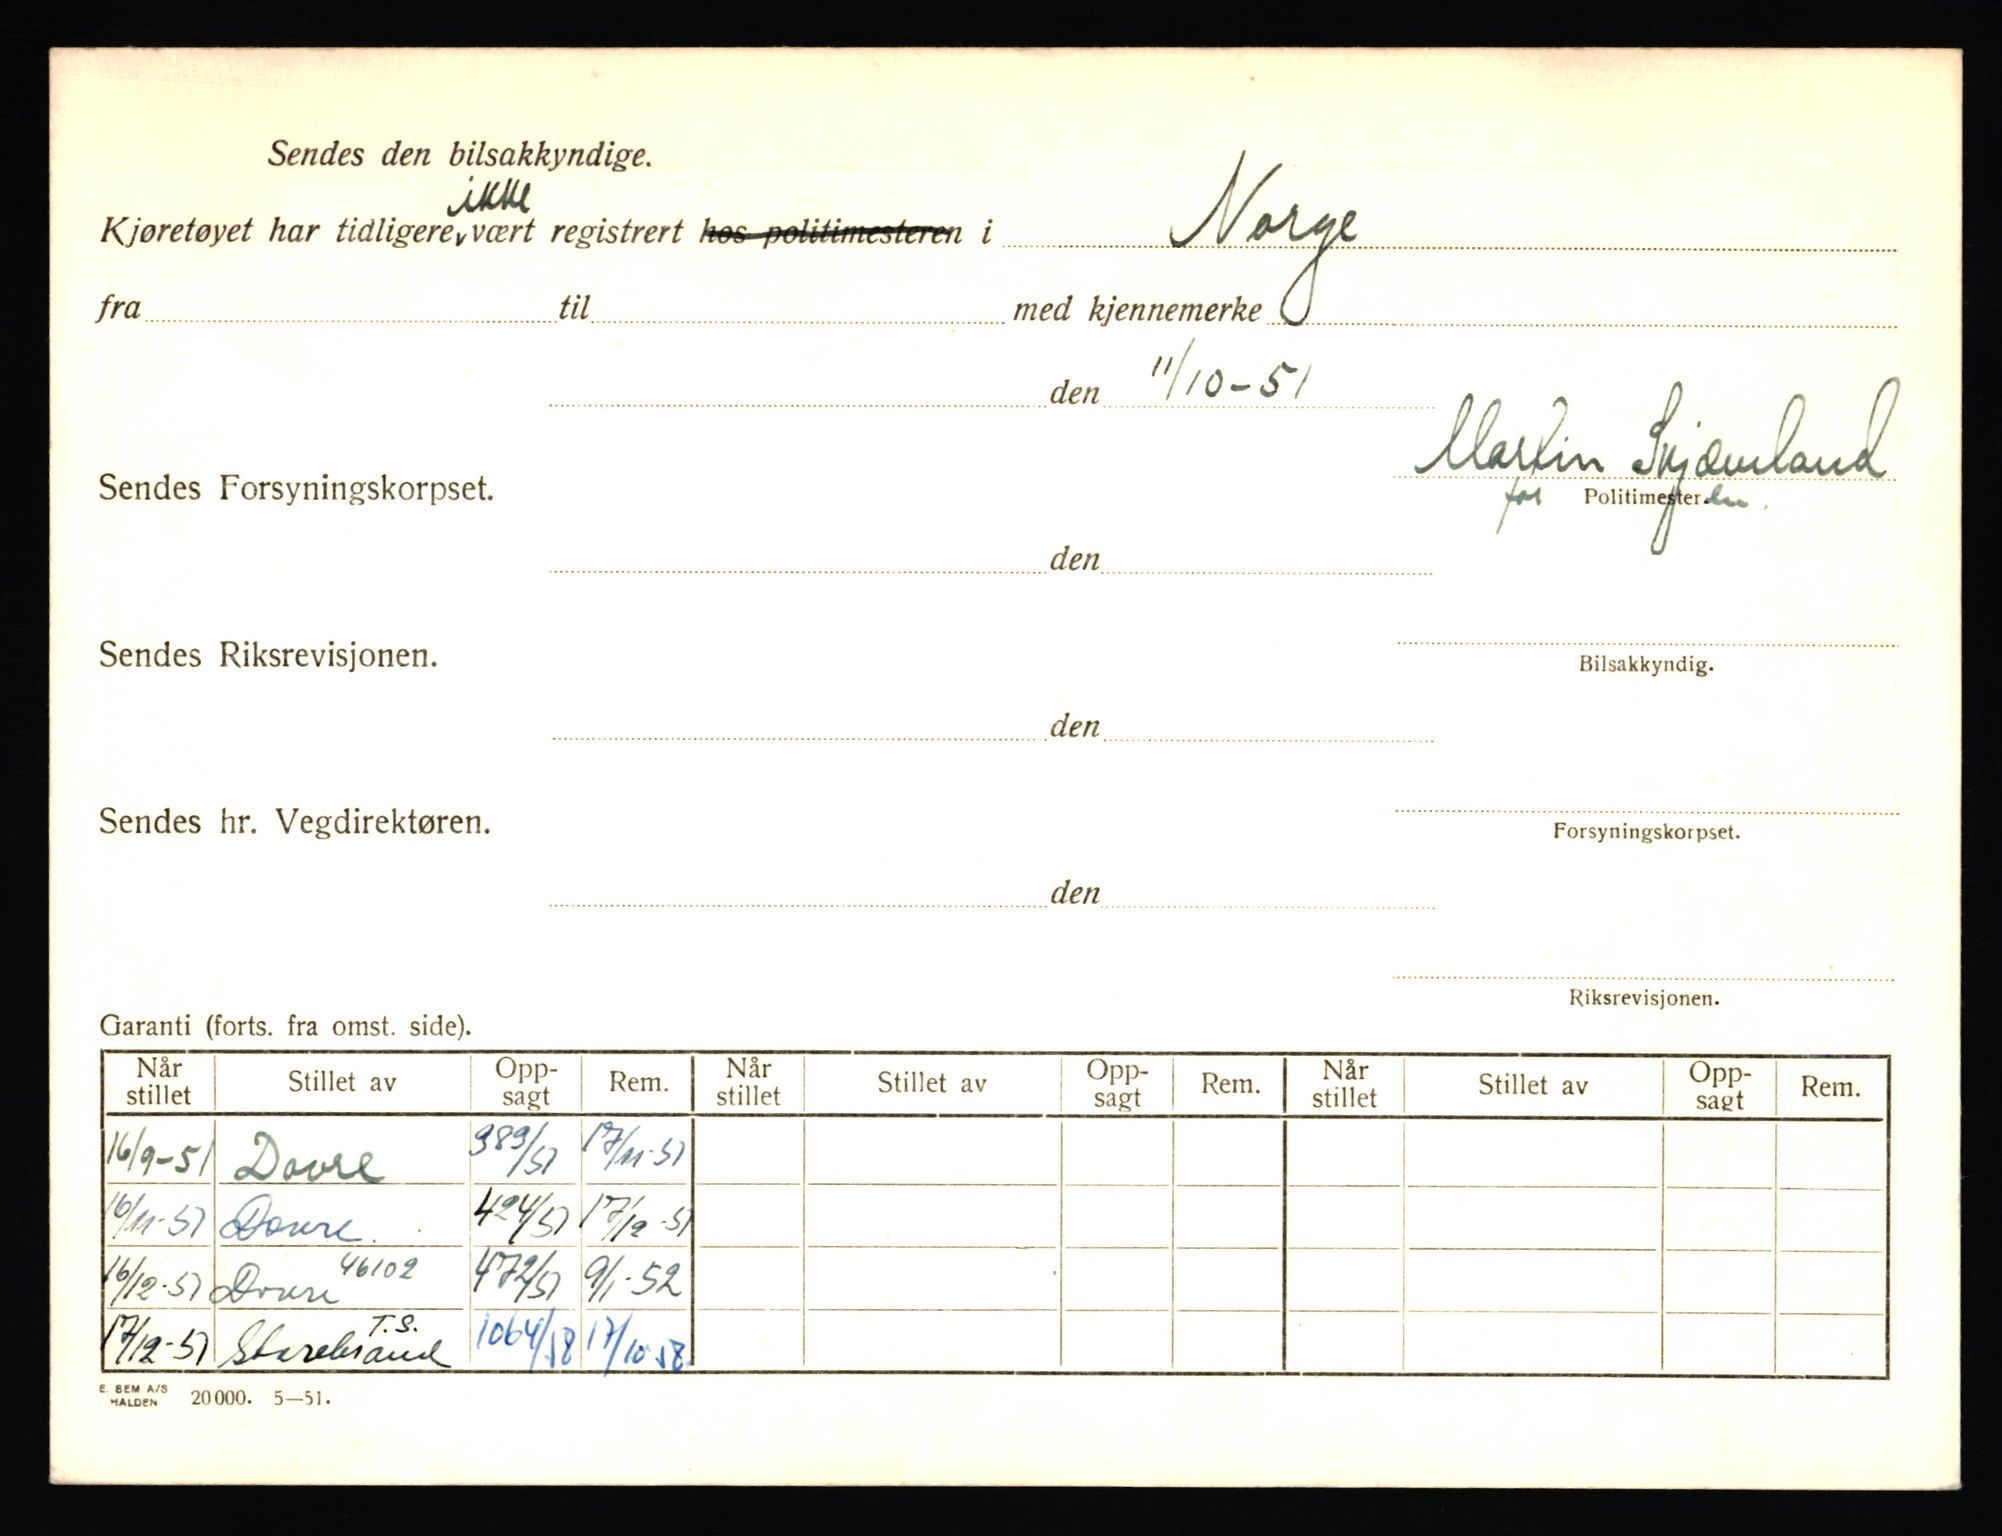 Sendes den bilsakkyndige.
ikke
Kjøretøyet har tidligere, vært registrert hos politimesteren i Norge
fra til med kjennemerke
den 11/10-51
Martin
Sendes Forsyningskorpset.
for Politimesteren.
den
Sendes Riksrevisjonen.
Bilsakkyndig.
den
Sendes hr. Vegdirektøren.
Forsyningskorpset.
den
Riksrevisjonen.
Garanti (forts. fra omst. side).
Når stillet Stillet av Opp-sagt Rem. Når stillet Stillet av Opp-sagt Rem. Når stillet Stillet av Opp-sagt Rem.
16/9-51 Dovre 389/51 17/11-51
16/11-51 Dovre. 424/51 17/12-51
16/12-51 Dovre 46102 472/51 9/1-52
17/12-51 Storebrand T.S. 1064/58 17/10-58
E. SEM A/S
HALDEN 20000. 5—51.